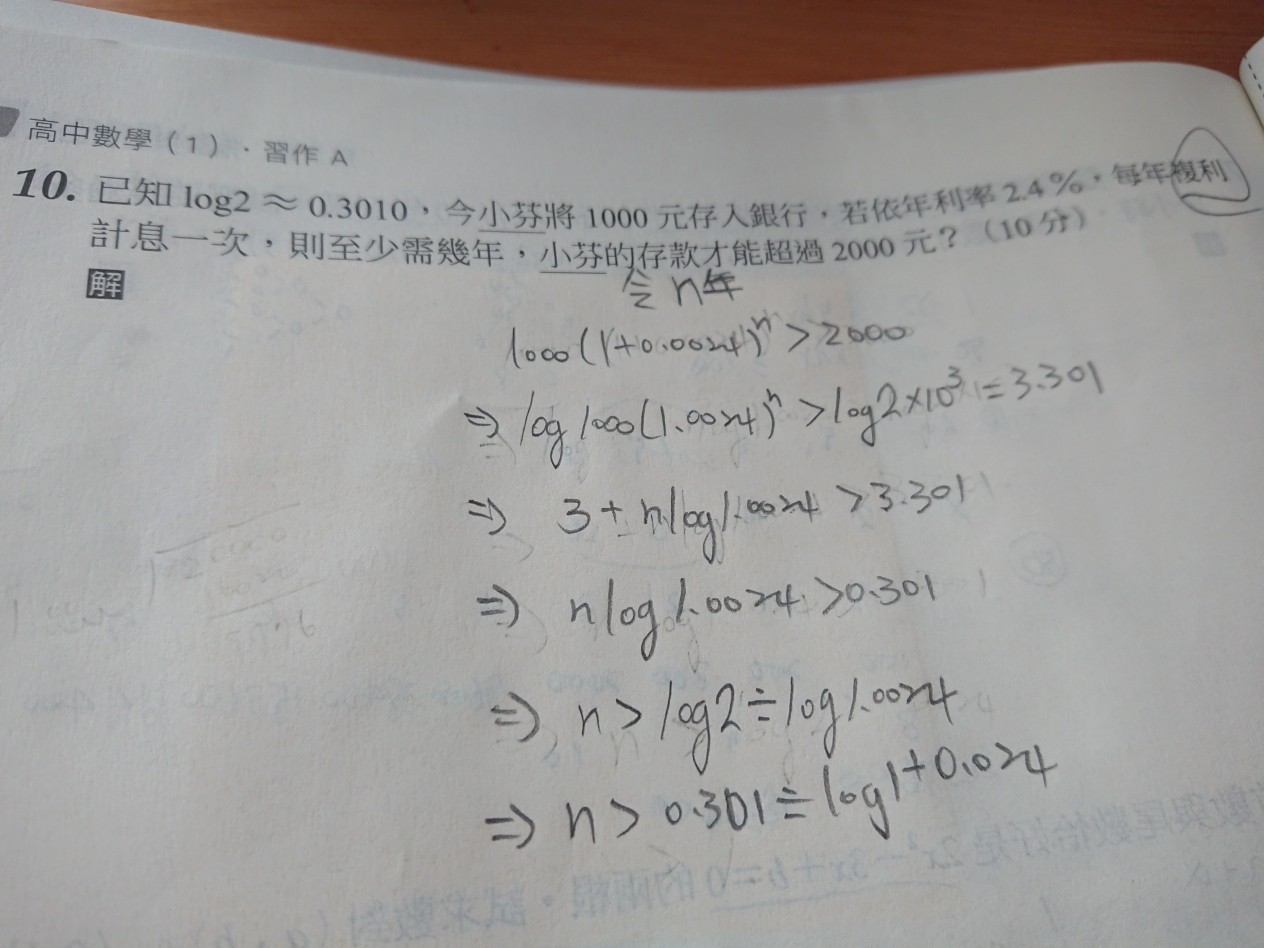 高中數學(1)．習作 A
10. 已知 log2 ≈ 0.3010，今小芬將 1000 元存入銀行，若依年利率 2.4%，每年複利
計息一次，則至少需幾年，小芬的存款才能超過 2000 元？（10 分）
解
令 n年
1000(1+0.0024)^n > 2000
⇒ log 1000(1.0024)^n > log2×10^3 = 3.301
⇒ 3 + nlog1.0024 > 3.301
⇒ nlog1.0024 > 0.301
⇒ n > log2÷log1.0024
⇒ n > 0.301÷log1+0.024